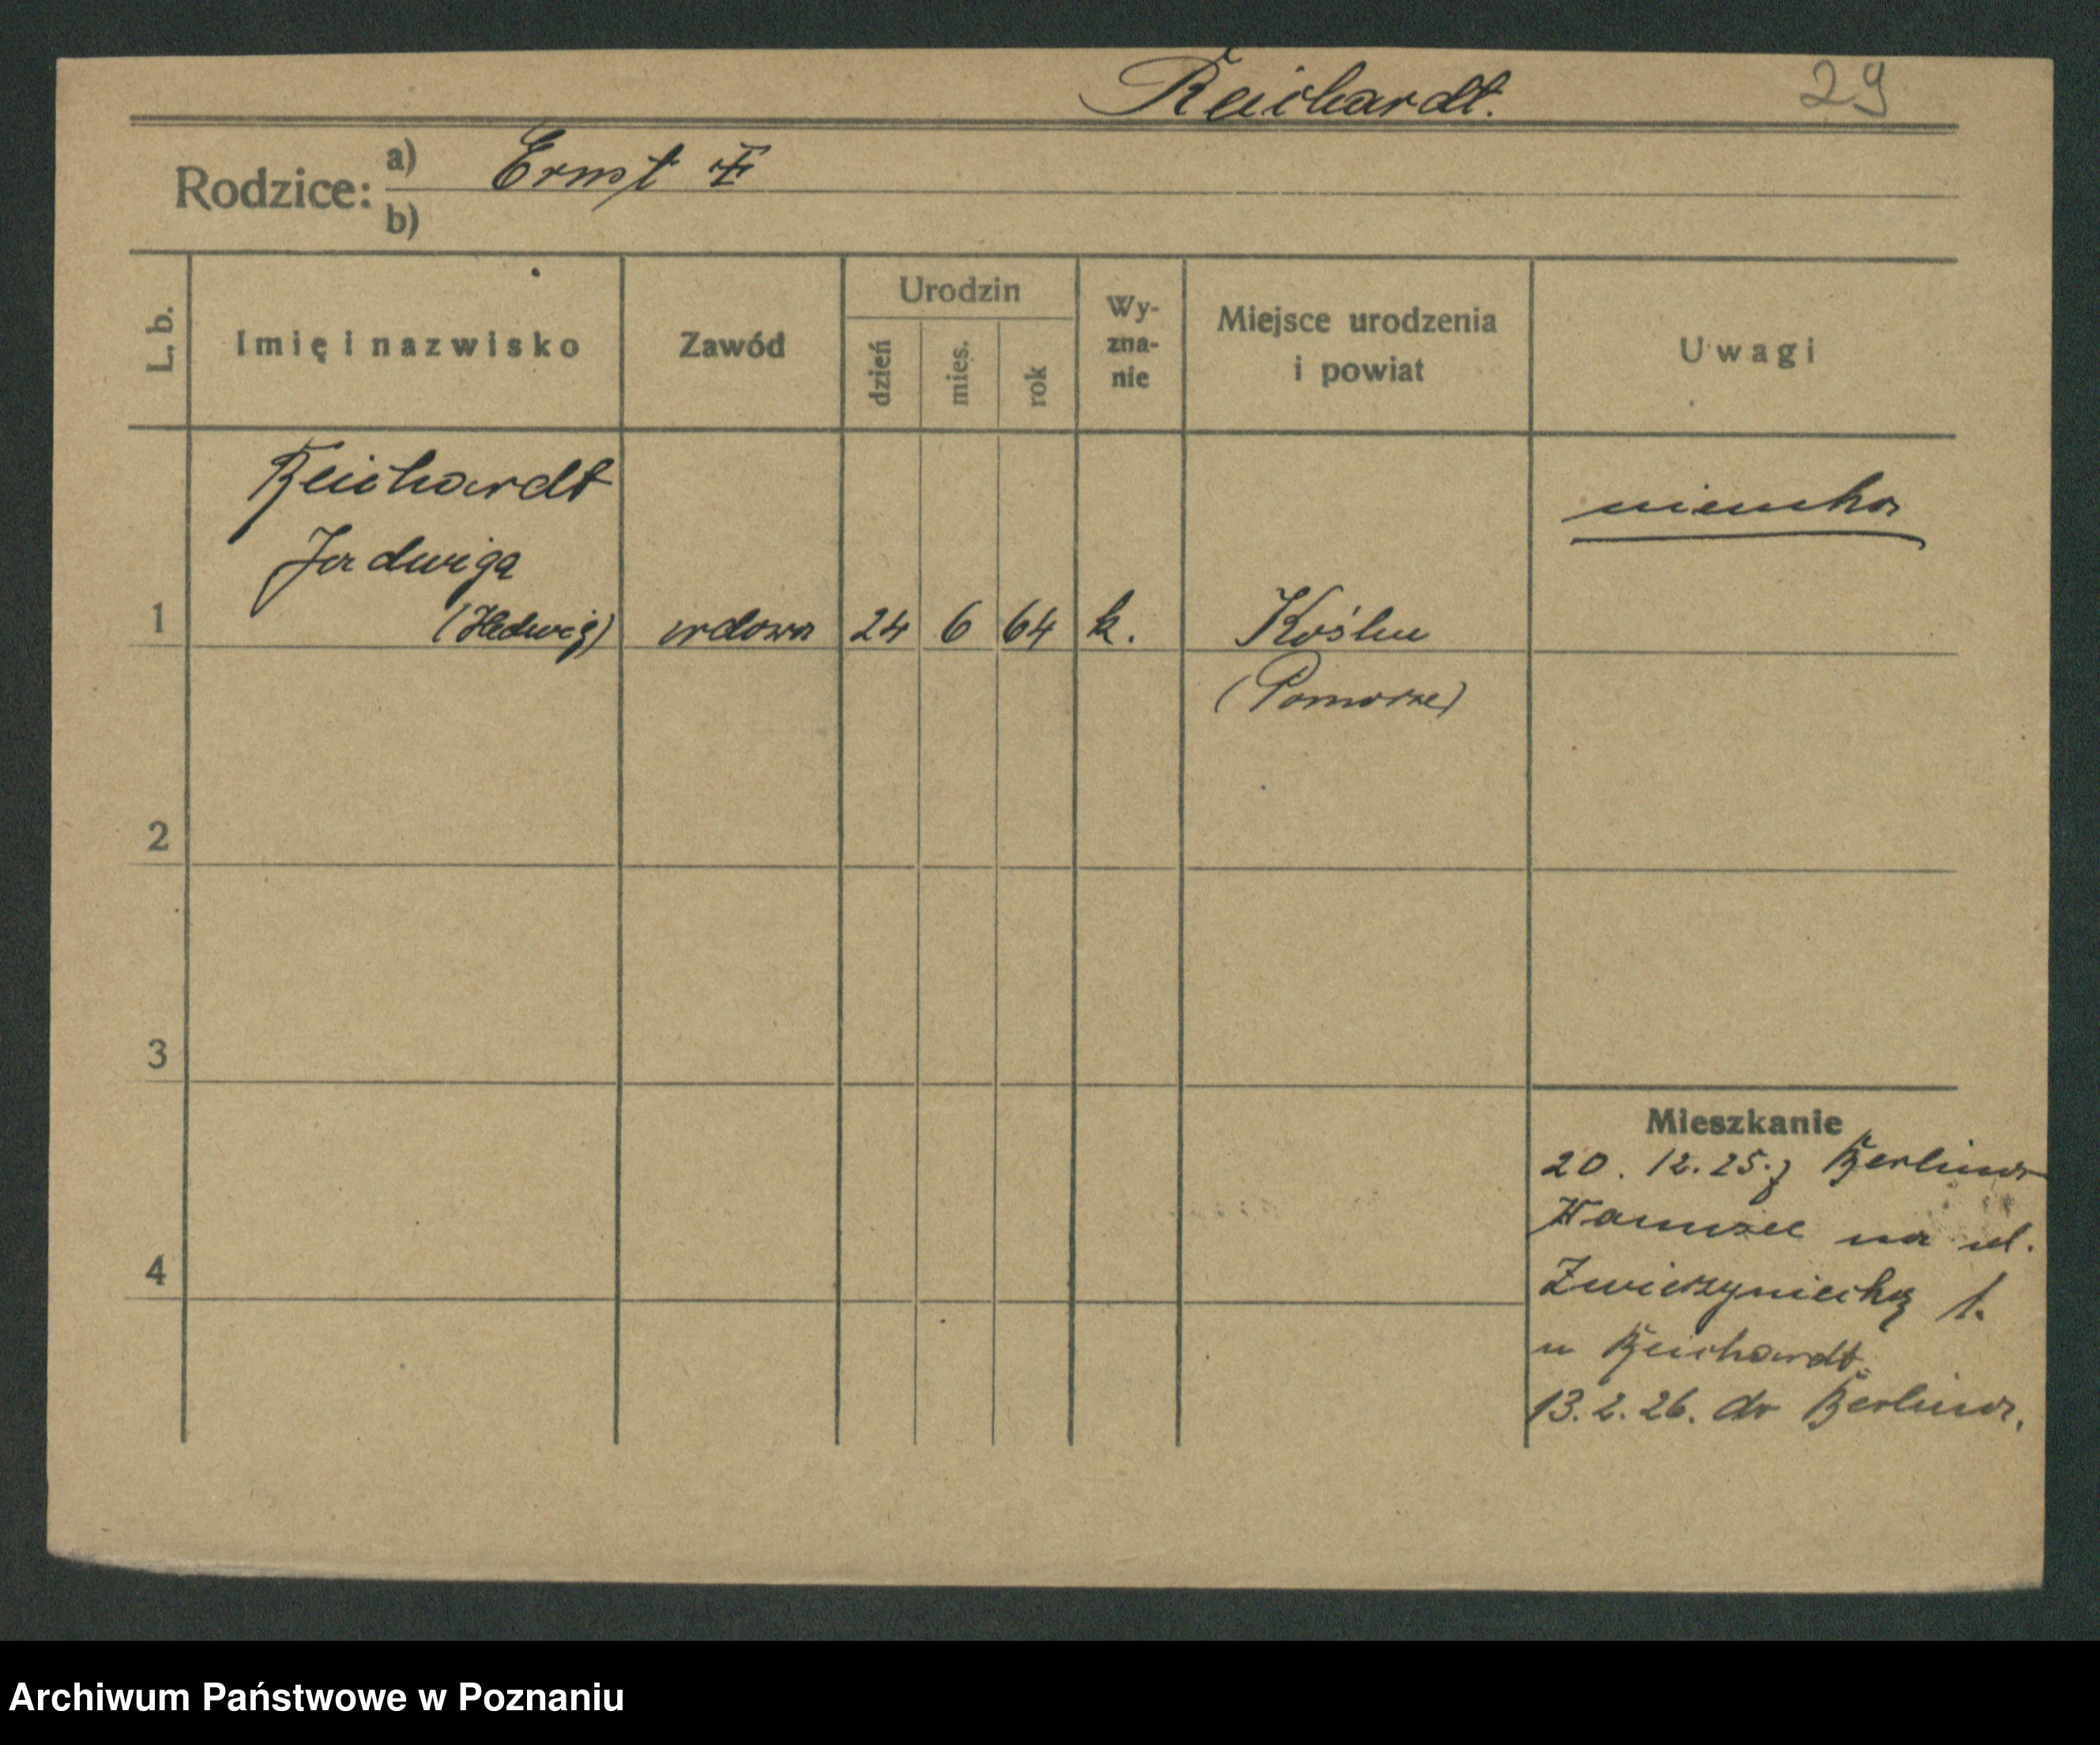 Reichardt.
29
Rodzice: a) Ernst ‡
b)
L. b.
Imię i nazwisko
Zawód
Urodzin
dzień
mies.
rok
Wy-
zna-
nie
Miejsce urodzenia
i powiat
Uwagi
Reichardt
Jadwiga
1 (Hedwig) wdowa 24 6 64 k.
(Pomorze)
niemka
2
3
4
Mieszkanie
20. 12. 25. z Berlina
na ul.
Zwierzyniecką 1.
u Reichardt.
13. 2. 26. do Berlina.
Archiwum Państwowe w Poznaniu